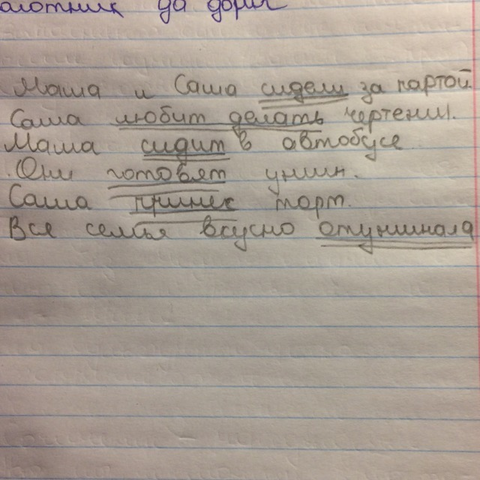 да
Маша и Саша сидели за партой
Саша любит делать чертежи.
Маша сидит в автобусе
Они готовят ужин.
Саша принес торт.
Все семья вкусно отужинала